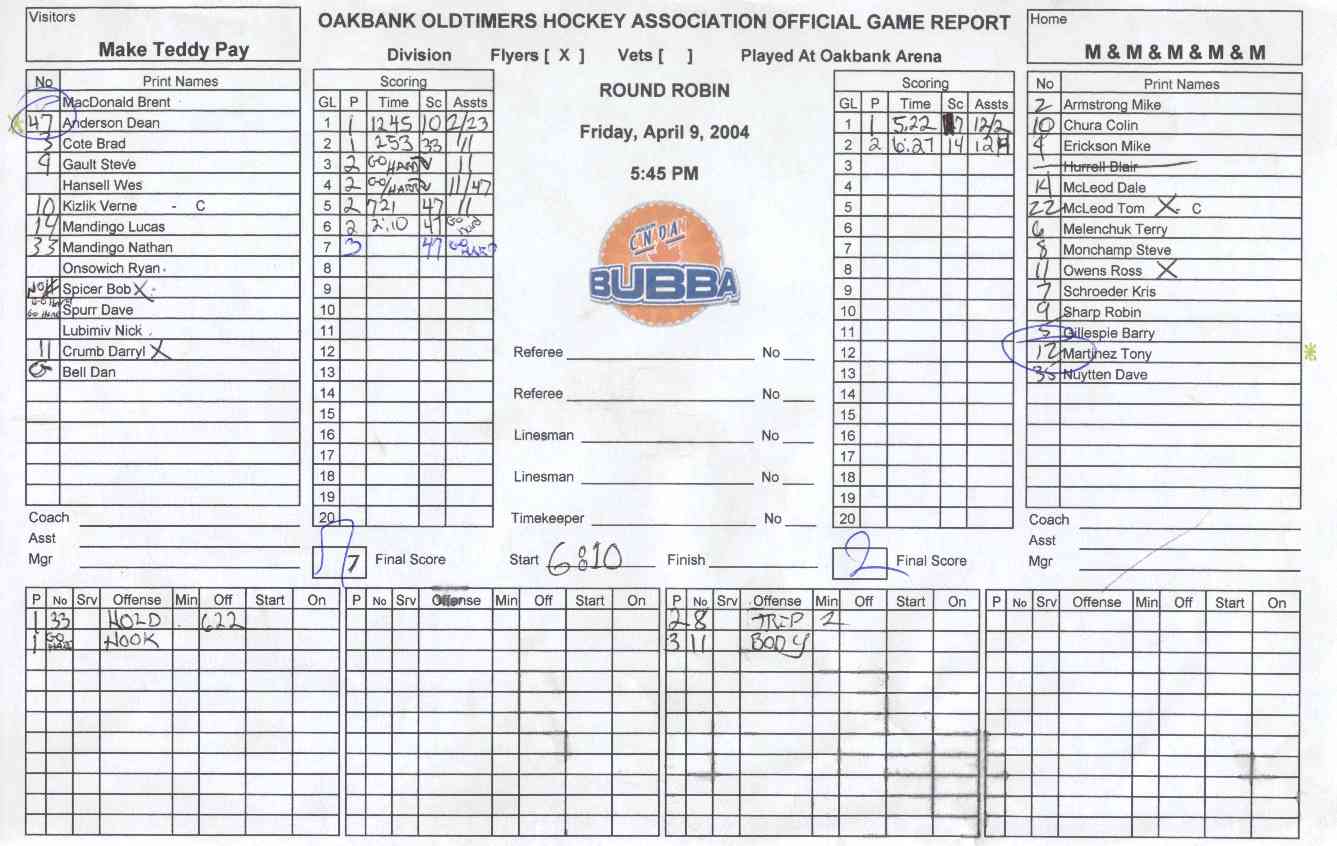 Visitors
Make Teddy Pay
OAKBANK OLDTIMERS HOCKEY ASSOCIATION OFFICIAL GAME REPORT
Division Flyers [ X ] Vets [ ] Played At Oakbank Arena
Home
M & M & M & M & M
ROUND ROBIN
Friday, April 9, 2004
5:45 PM
CANADIAN
BUBBA
No Print Names
MacDonald Brent
47 Anderson Dean
3 Cote Brad
9 Gault Steve
Hansell Wes
10 Kizlik Verne - C
14 Mandingo Lucas
33 Mandingo Nathan
Onsowich Ryan
Spicer Bob X
GO HARD Spurr Dave
Lubimiv Nick
11 Crumb Darryl X
Bell Dan
Coach
Asst
Mgr
Scoring
GL P Time Sc Assts
1 1 12 45 10 2/23
2 1 2 53 33 11
3 2 GO/HARD 11
4 2 GO/HARD 11/47
5 2 7 21 47 11
6 2 2:10 47 GO HARD
7 3 47 GO HARD
8
9
10
11
12
13
14
15
16
17
18
19
20
7 Final Score
Referee No
Referee No
Linesman No
Linesman No
Timekeeper No
Start 6:10 Finish
Scoring
GL P Time Sc Assts
1 1 5:22 7 12/2
2 2 6:27 14 12
3
4
5
6
7
8
9
10
11
12
13
14
15
16
17
18
19
20
2 Final Score
No Print Names
2 Armstrong Mike
10 Chura Colin
4 Erickson Mike
Hurrell Blair
14 McLeod Dale
22 McLeod Tom X C
6 Melenchuk Terry
8 Monchamp Steve
11 Owens Ross X
7 Schroeder Kris
9 Sharp Robin
5 Gillespie Barry
12 Martinez Tony
35 Nuytten Dave
Coach
Asst
Mgr
P No Srv Offense Min Off Start On
1 33 HOLD 622
1 GO HARD HOOK
P No Srv Offense Min Off Start On
P No Srv Offense Min Off Start On
2 8 TRIP 2
3 11 BODY
P No Srv Offense Min Off Start On